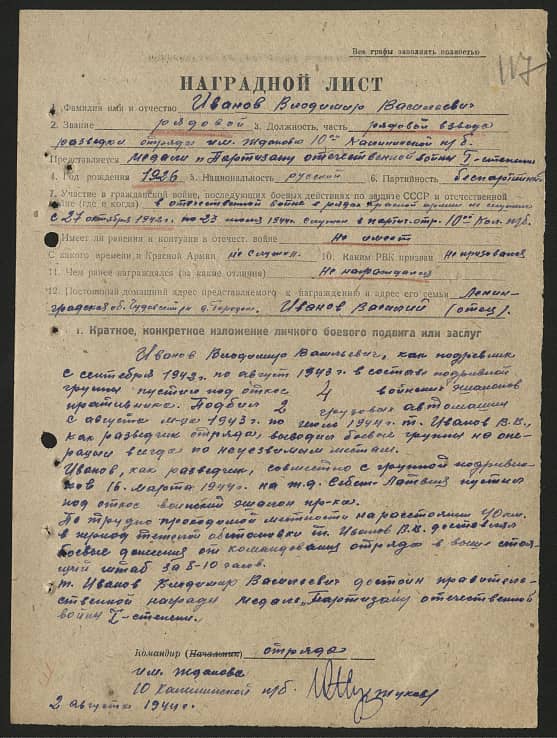 Все графы заполнять полностью
117
НАГРАДНОЙ ЛИСТ
1. Фамилия имя и отчество Иванов Владимир Васильевич
2. Звание рядовой 3. Должность, часть рядовой взвода
разведки отряда им. Жданова 10ой Калининской п/б.
Представляется медали „Партизану отечественной войны I-степени
4. Год рождения 1926 5. Национальность русский 6. Партийность беспартийный
7. Участие в гражданской войне, последующих боевых действиях по защите СССР и отечественной
войне (где и когда) в отечественной войне в рядах Красной армии не служил
с 27 октября 1942г. по 23 июля 1944г. служил в партиз. отр. 10ой Кал. п/б.
8. Имеет ли ранения и контузии в отечест. войне не имеет
С какого времени в Красной Армии не служил. 10. Каким РВК призван не призывался
11. Чем ранее награждался (за какие отличия) Не награждался
12. Постоянный домашний адрес представляемого к награждению и адрес его семьи Ленин-
градская об. Чудовский р. Иванов Василий (отец).
1. Краткое, конкретное изложение личного боевого подвига или заслуг
Иванов Владимир Васильевич, как подрывник
с сентября 1942г. по август 1943г. в составе подрывной
группы пустил под откос 4 воинских эшелонов
противника. Подбил 2 грузовых автомашин
с августа 1943г. по июль 1944г. т. Иванов В.В.,
как разведчик отряда, выводил боевые группы на опе-
рации всегда по неуязвимым местам.
Иванов, как разведчик, совместно с группой подрывни-
ков 16. марта 1944г. на ж.д. Себеж-Латвия пустил
под откос воинский эшелон пр-ка.
По трудно проходимой местности на расстоянии 40 км.
в период тяжелой обстановки т. Иванов В.В. доставлял
боевые донесения от командования отряда в выше стоя-
щий штаб за 8-10 часов.
т. Иванов Владимир Васильевич достоин правитель-
ственной награды медали „Партизану отечественной
войны I-степени.
Командир (Начальник) отряда
им. Жданова
10 Калининской п/б. Жуков
2 августа 1944г.